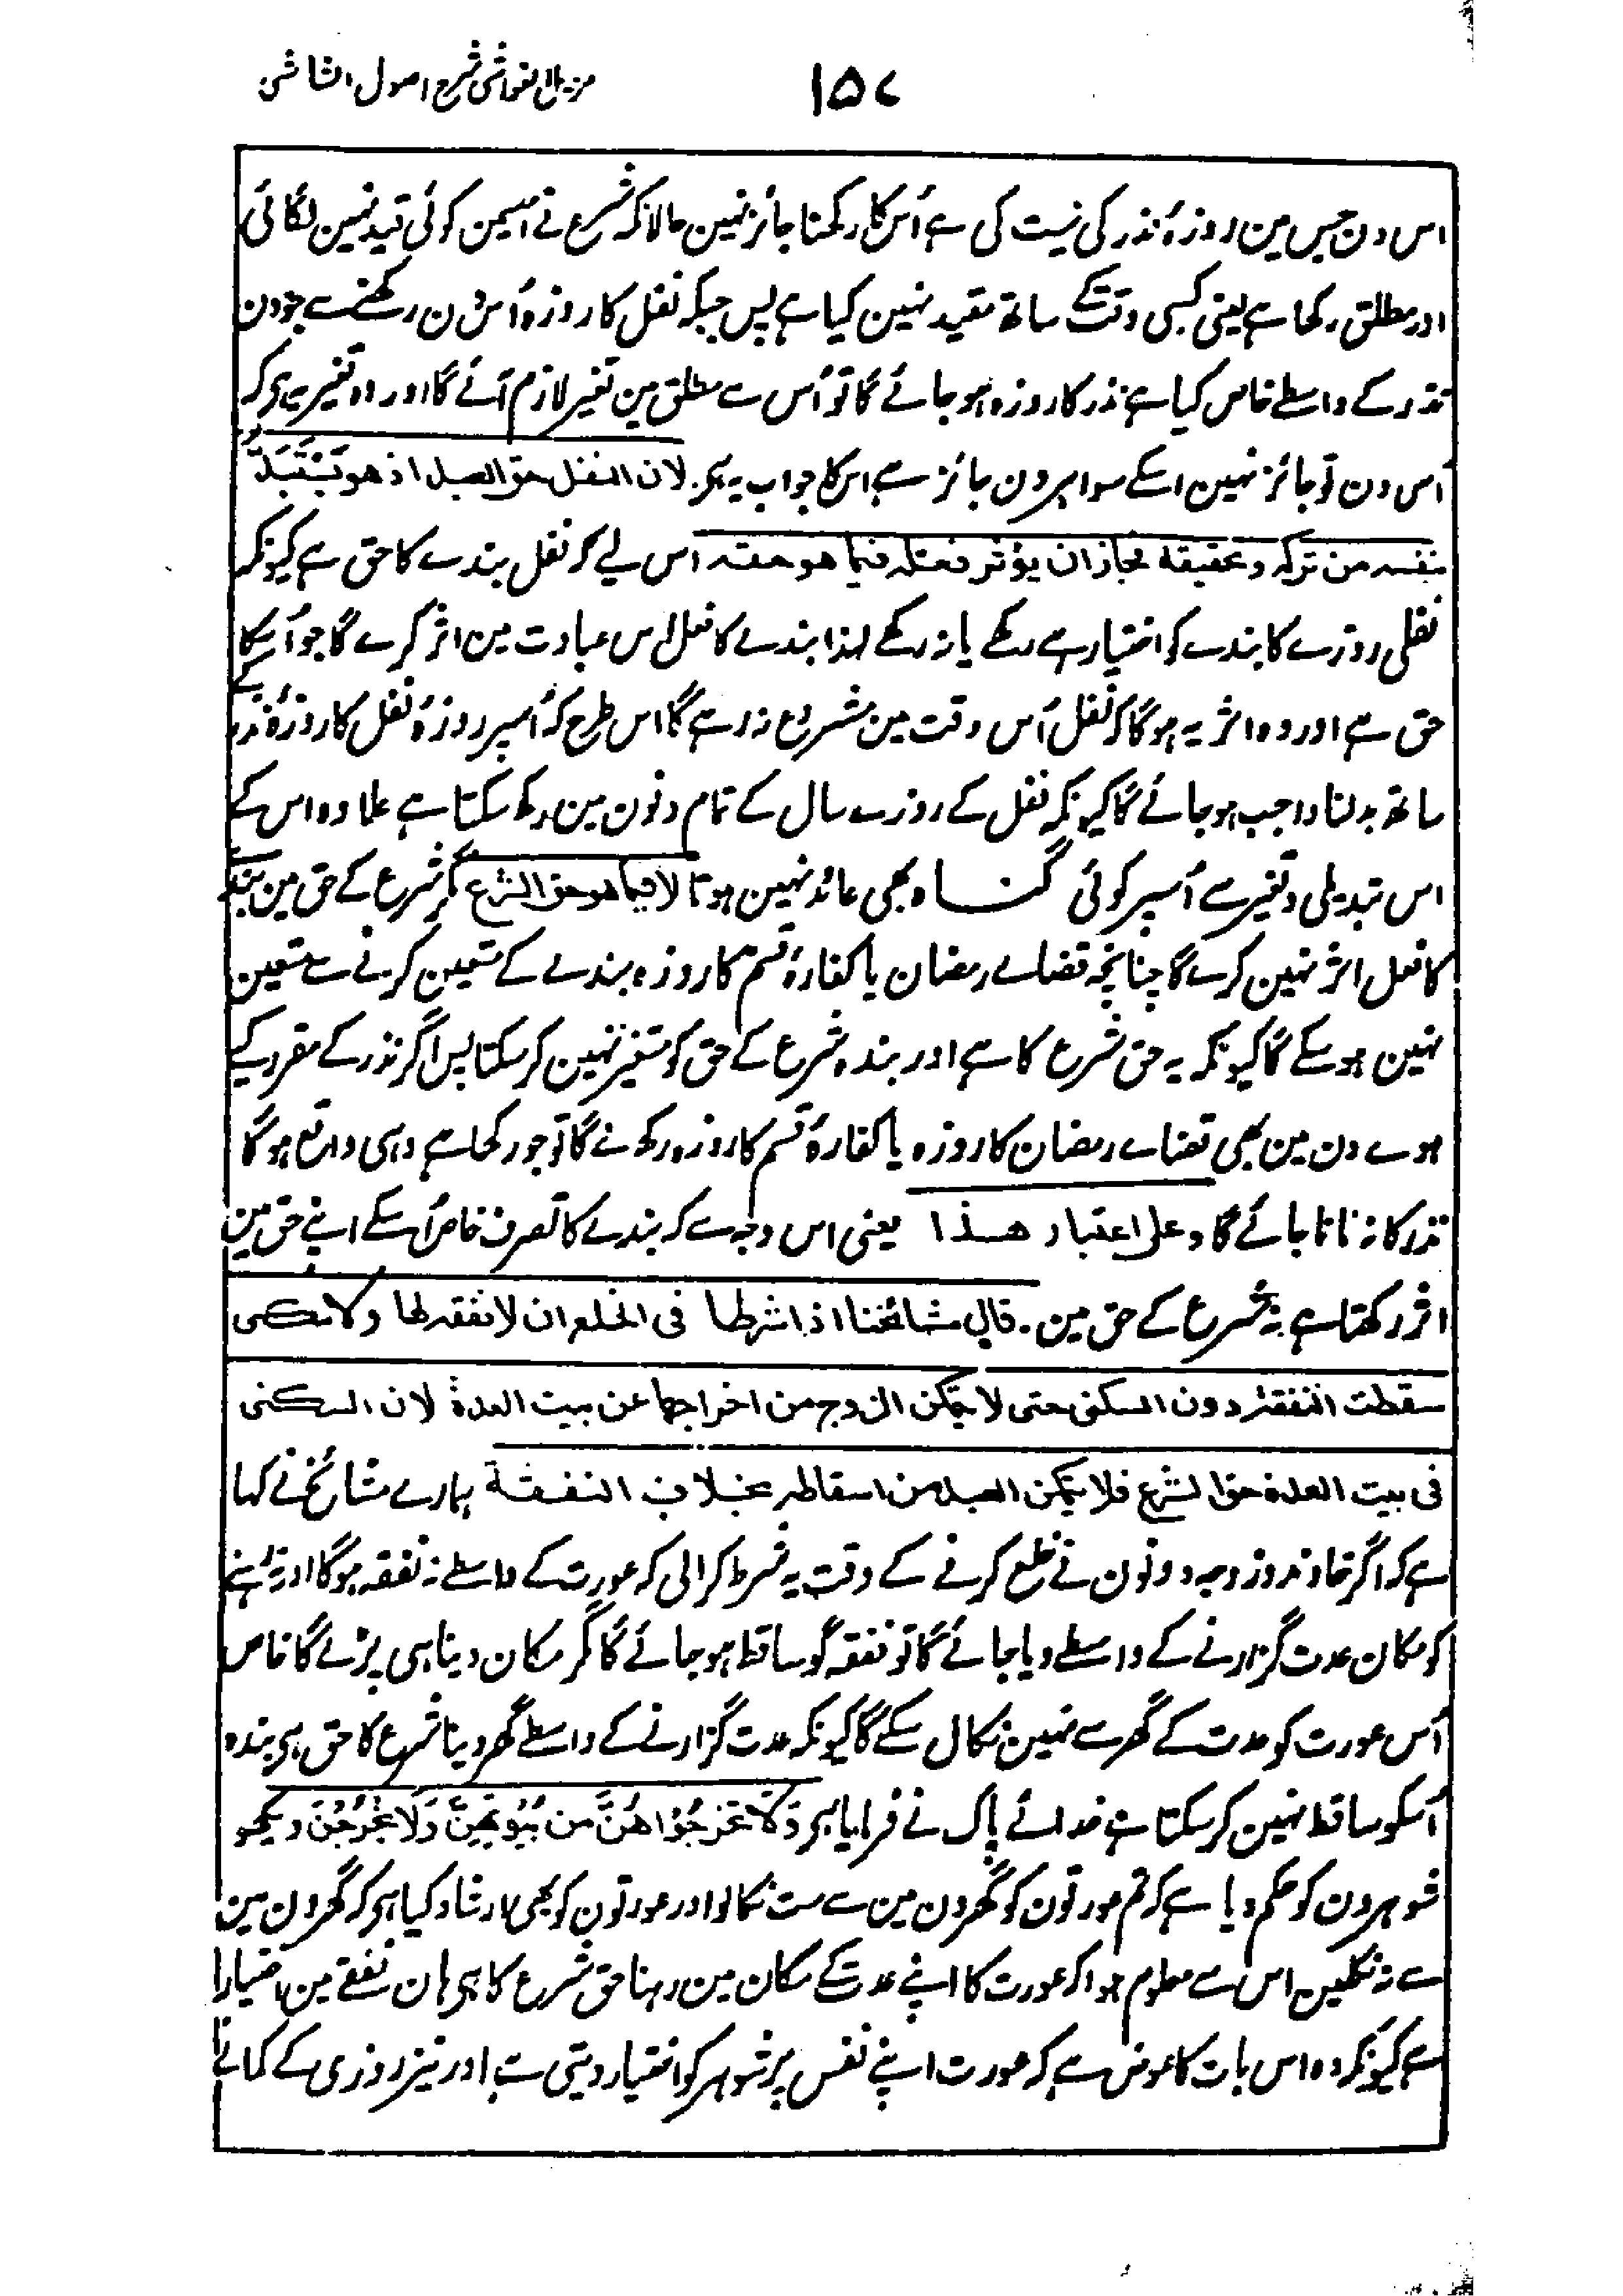 ۱۵۷
مزیل الغواشی شرح اصول الشاشی
اس دن جس مین روزۂ نذر کی نیت کی ہے اُس کا رکھنا جائز نہین حالانکہ شرع نے اسمین کوئی قید نہین لگائی
اور مطلق رکھا ہے یعنی کسی وقت کے ساتھ مقید نہین کیا ہے پس جبکہ نفل کا روزہ اُس دن رکھنے سے جو دن
نذر کے واسطے خاص کیا ہے نذر کا روزہ ہو جائے گا تو اُس سے مطلق مین تغیر لازم آئے گا اور وہ تغیر یہ ہی کہ
اُس دن تو جائز نہین اسکے سوا ہر دن جائز ہے اس کا جواب یہ ہی۔ لان النفل حق العبد اذ هو یَسْتَبِدُّ
بنفسه من ترکه و تحقیقه فجاز ان یؤثر فعله فیما هو حقه اس لیے کہ نفل بندے کا حق ہے کیونکہ
نفلی روزے کا بندے کو اختیار ہے رکھے یا نہ رکھے لہذا بندے کا فعل اس عبادت مین اثر کرے گا جو اُسکا
حق ہے اور وہ اثر یہ ہو گا کہ نفل اُس وقت مین مشروع نہ رہے گا اس طرح کہ اُسپر روزۂ نفل کا روزۂ نذر کے
ساتھ بدلنا واجب ہو جائے گا کیونکہ نفل کے روزے سال کے تمام دنون مین رکھ سکتا ہے علاوہ اس کے
اس تبدیلی و تغیر سے اُسپر کوئی گناہ بھی عائد نہین ہوتا لا فیما هو حق الشرع مگر شرع کے حق مین بندے
کا فعل اثر نہین کرے گا چنانچہ قضاے رمضان یا کفارۂ قسم کا روزہ بندے کے متعین کرنے سے متعین
نہین ہو سکے گا کیونکہ یہ حق شرع کا ہے اور بندہ شرع کے حق کو متغیر نہین کر سکتا پس اگر نذر کے مقرر کیے
ہوے دن مین بھی قضاے رمضان کا روزہ یا کفارۂ قسم کا روزہ رکھ لے گا تو جو رکھا ہے وہی واقع ہو گا
نذر کا نہ مانا جائے گا و علی اعتبار هذا یعنی اس وجہ سے کہ بندے کا تصرف خاص اُسکے اپنے حق مین
اثر رکھتا ہے نہ شرع کے حق مین۔ قال مشائخنا اذا شرطا فی الخلع ان لا نفقه لها ولا سکنی
سقطت النفقة دون السکنی حتی لا یتمکن الزوج من اخراجها عن بیت العدة لان السکنی
فی بیت العدة حق الشرع فلا یتمکن العبد من اسقاطه بخلاف النفقة ہمارے مشائخ نے کہا
ہے کہ اگر خاوند و زوجہ دونون نے خلع کرنے کے وقت یہ شرط کرالی کہ عورت کے واسطے نہ نفقہ ہو گا اور نہ رہنے
کو مکان عدت گزارنے کے واسطے دیا جائے گا تو نفقہ گو ساقط ہو جائے گا مگر مکان دینا ہی پڑے گا خاص
اُس عورت کو عدت کے گھر سے نہین نکال سکے گا کیونکہ عدت گزارنے کے واسطے گھر دینا شرع کا حق ہی بندہ
اُسکو ساقط نہین کر سکتا ہے خداے پاک نے فرمایا ہی وَلَا تُخْرِجُوْاهُنَّ مِن بُیُوْتِهِنَّ وَلَا یَخْرُجْنَ دیکھو
شوہرون کو حکم دیا ہے کہ تم عورتون کو گھرون مین سے مت نکالو اور عورتون کو بھی ارشاد کیا ہی کہ گھرون مین
سے نہ نکلین اس سے معلوم ہوا کہ عورت کا اپنے عدت کے مکان مین رہنا حق شرع کا ہی ہان نفقے مین اختیار
ہے کیونکہ وہ اس بات کا عوض ہے کہ عورت اپنے نفس پر شوہر کو اختیار دیتی ہے اور نیز روزی کے کمانے